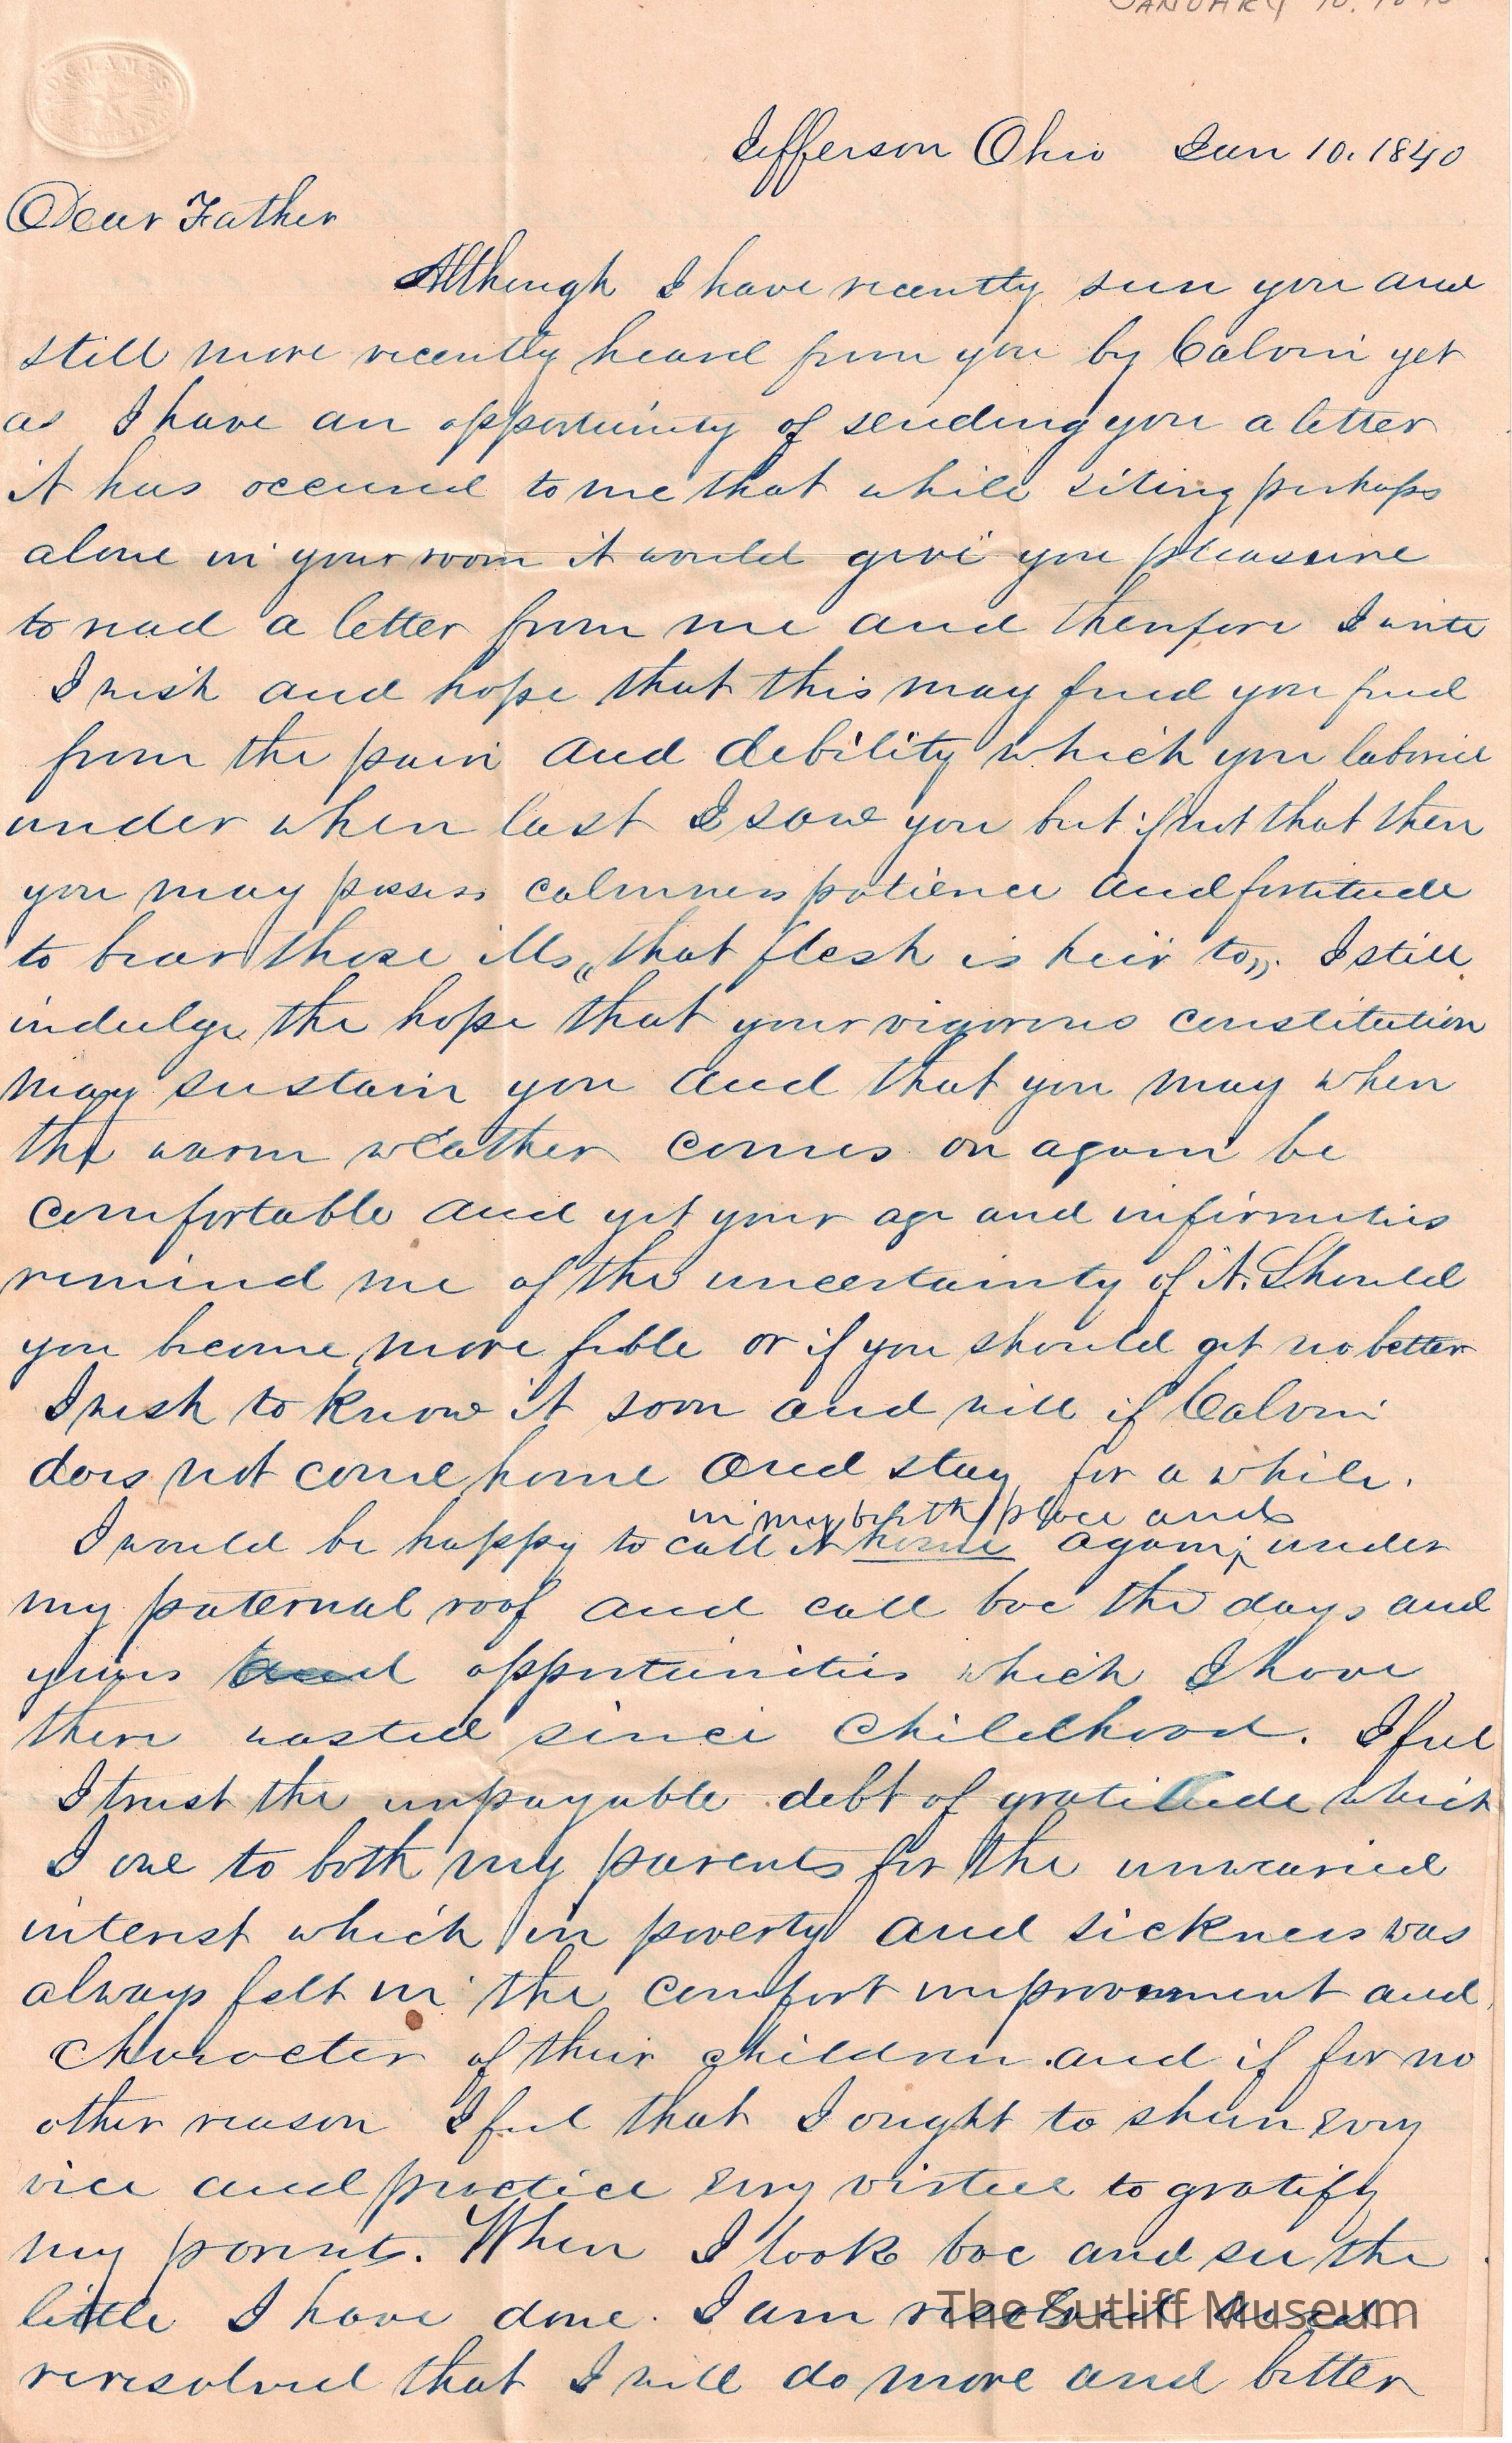 JANUARY 10. 1840
Jefferson Ohio Jan 10. 1840
Dear Father
Although I have recently seen you and
still more recently heard from you by Calvin yet
as I have an opportunity of sending you a letter
it has occured to me that while siting perhaps
alone in your room it would give you pleasure
to read a letter from me and therefore I write
I wish and hope that this may find you freed
from the pain and debility which you labored
under when last I saw you but if not that then
you may possess calmness patience and fortitude
to bear those ills „that flesh is heir to„. I still
indulge the hope that your vigorous constitution
may sustain you and that you may when
the warm weather comes on again be
comfortable and yet your age and infirmities
remind me of the uncertainty of it. Should
you become more feble or if you should get no better
I wish to know it soon and will if Calvin
does not come home and stay for a while.
in my birth place and
I would be happy to call it home again, under
my paternal roof and call bac the days and
years and opportunities which I have
there wasted since childhood. I feel
I trust the unpayable debt of gratitude which
I owe to both my parents for the unwearied
interest which in poverty and sickness was
always felt in the comfort improvement and
character of their children and if for no
other reason I feel that I ought to shun evry
vice and practice evry virtue to gratify
my parents. When I look bac and see the
little I have done. I am resolved and
reresolved that I will do more and better
The Sutliff Museum